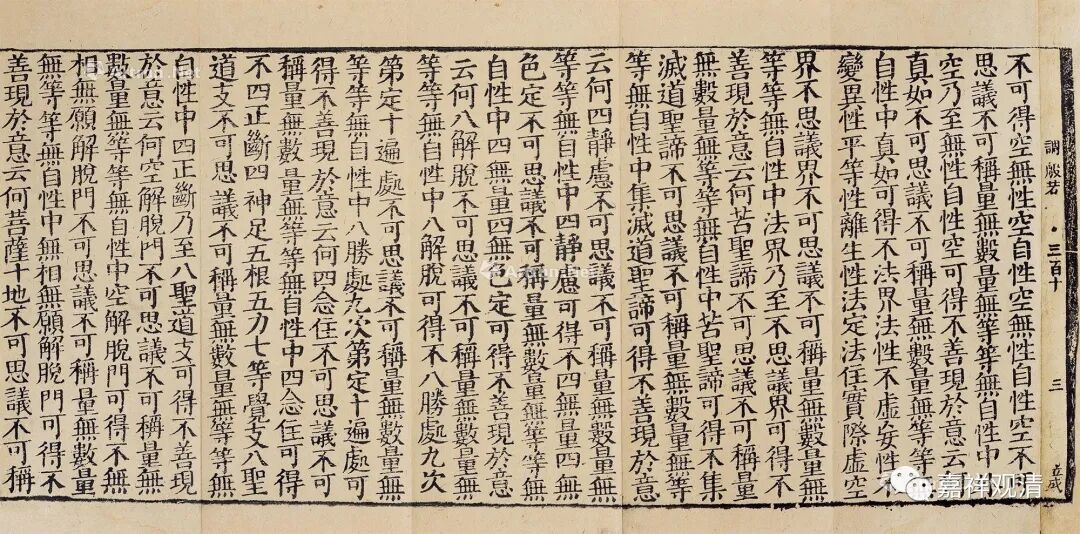 調般若 三百十 三
不可得空無性空自性空無性自性空不可
思議不可稱量無數量無等等無自性中
空乃至無性自性空可得不善現於意云
真如不可思議不可稱量無數量無等等
自性中真如可得不法界法性不虛妄性不
變異性平等性離生性法定法住實際虛空
界不思議界不可思議不可稱量無數量無
等等無自性中法界乃至不思議界可得不
善現於意云何苦聖諦不可思議不可稱量
無數量無等等無自性中苦聖諦可得不集
滅道聖諦不可思議不可稱量無數量無等
等無自性中集滅道聖諦可得不善現於意
云何四靜慮不可思議不可稱量無數量無
等等無自性中四靜慮可得不四無量四無
色定不可思議不可稱量無數量無等等無
自性中四無量四無色定可得不善現於意
云何八解脫不可思議不可稱量無數量無
等等無自性中八解脫可得不八勝處九次
第定十遍處不可思議不可稱量無數量無
等等無自性中八勝處九次第定十遍處可
得不善現於意云何四念住不可思議不可
稱量無數量無等等無自性中四念住可得
不四正斷四神足五根五力七等覺支八聖
道支不可思議不可稱量無數量無等等無
自性中四正斷乃至八聖道支可得不善現
於意云何空解脫門不可思議不可稱量無
數量無等等無自性中空解脫門可得不無
相無願解脫門不可思議不可稱量無數量
無等等無自性中無相無願解脫門可得不
善現於意云何菩薩十地不可思議不可稱
嘉祥观清